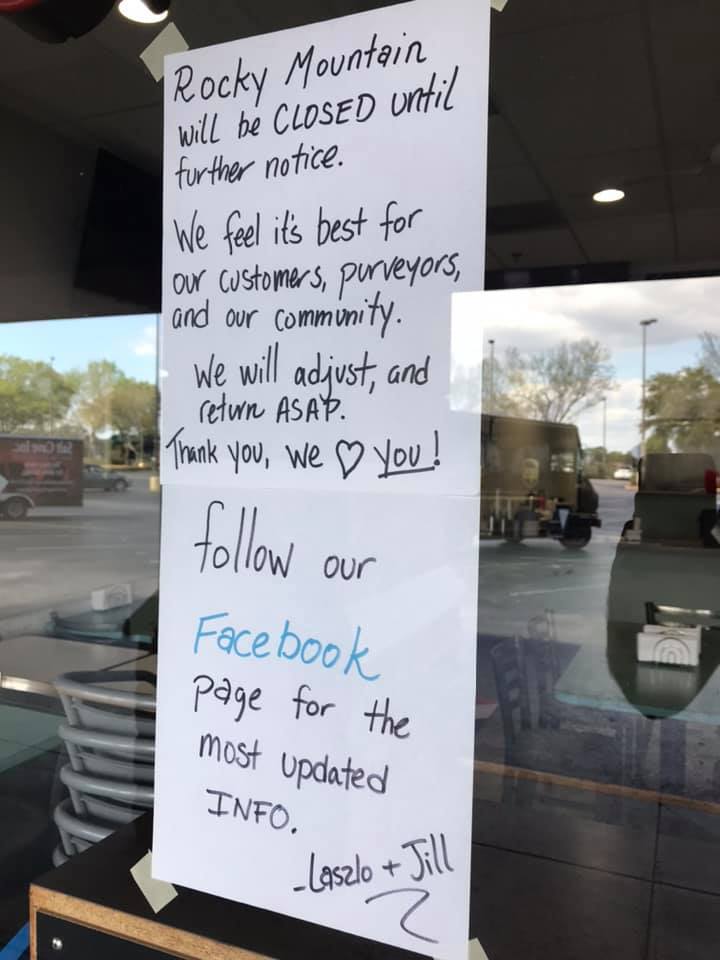 Rocky Mountain
will be CLOSED until
further notice.
We feel it's best for
our customers, purveyors,
and our community.
We will adjust, and
return ASAP.
Thank you, we ♡ you!
follow our
Facebook
page for the
most updated
INFO.
-Laszlo + Jill